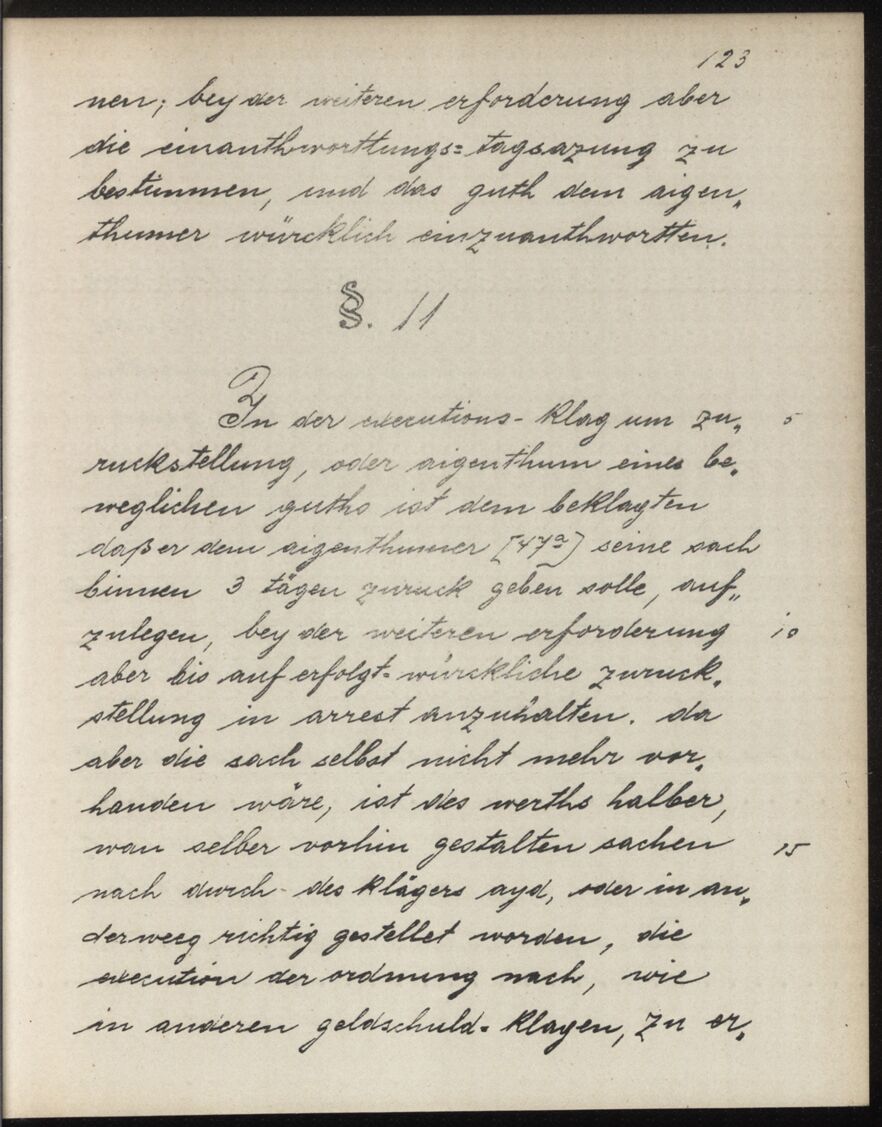 123
nen; bey der weiteren erforderung aber
die einanthworttungs= tagsazung zu
bestimmen, und das guth dem aigen„
thumer würcklich einzuanthwortten.
§. 11
In der executions- klag um zu„ 5
ruckstellung, oder aigenthum eines be„
weglichen guths ist dem beklagten
daß er dem aigenthumer [47a] seine sach
binnen 3 tägen zuruck geben solle, auf„
zulegen, bey der weiteren erforderung 10
aber bis auf erfolgt= würckliche zuruck„
stellung in arrest anzuhalten. da
aber die sach selbst nicht mehr vor„
handen wäre, ist des werths halber,
wan selber vorhin gestalten sachen 15
nach durch des klägers ayd, oder in an„
derweeg richtig gestellet worden, die
execution der ordnung nach, wie
in anderen geldschuld= klagen, zu er„